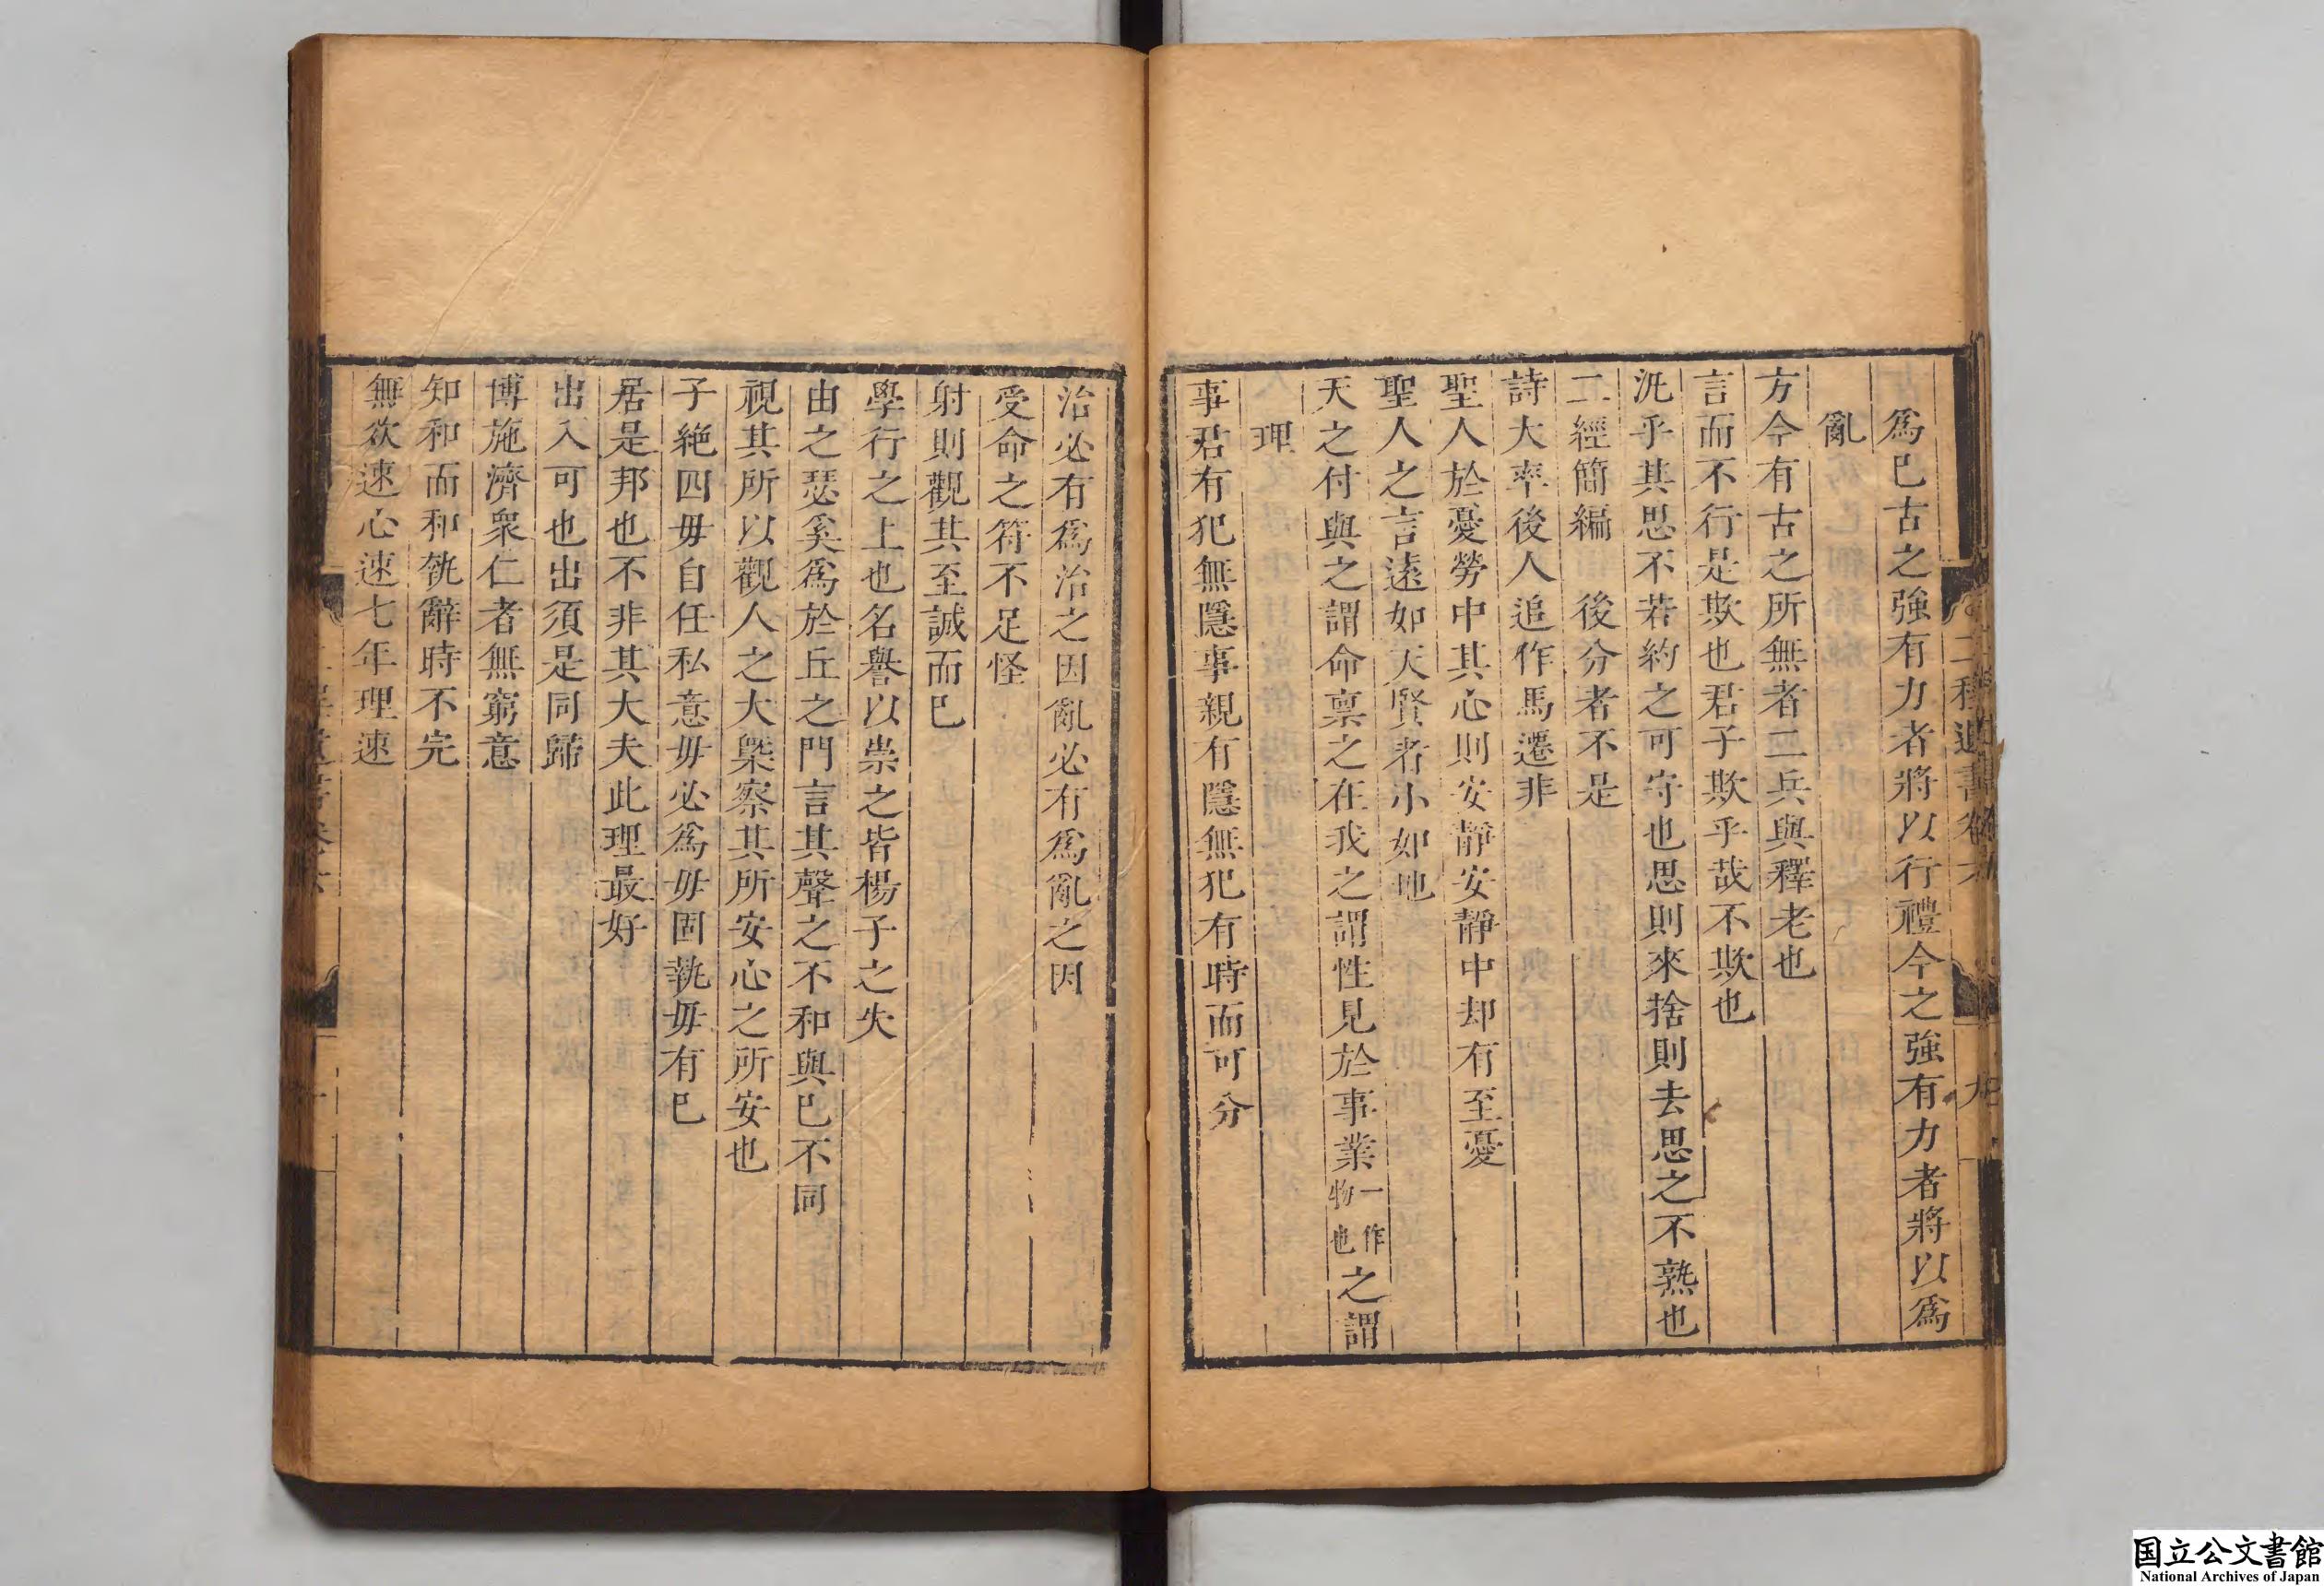 爲巳古之強有力者將以行禮今之強有力者將以爲
亂
方今有古之所無者二兵與釋老也
言而不行是欺也君子欺乎哉不欺也
泛乎其思不若約之可守也思則來捨則去思之不熟也
二經簡編　後分者不是
詩大率後人追作馬遷非
聖人於憂勞中其心則安靜安靜中却有至憂
聖人之言遠如天賢者小如地
天之付與之謂命稟之在我之謂性見於事業一作物也之謂
理
事君有犯無隱事親有隱無犯有時而可分
二程遺書卷六
九
治必有爲治之因亂必有爲亂之因
受命之符不足怪
射則觀其至誠而巳
學行之上也名譽以崇之皆楊子之失
由之瑟奚爲於丘之門言其聲之不和與巳不同
視其所以觀人之大槩察其所安心之所安也
子絶四毋自任私意毋必爲毋固執毋有巳
居是邦也不非其大夫此理最好
出入可也出須是同歸
博施濟衆仁者無窮意
知和而和執辭時不完
無欲速心速七年理速
国立公文書館
National Archives of Japan